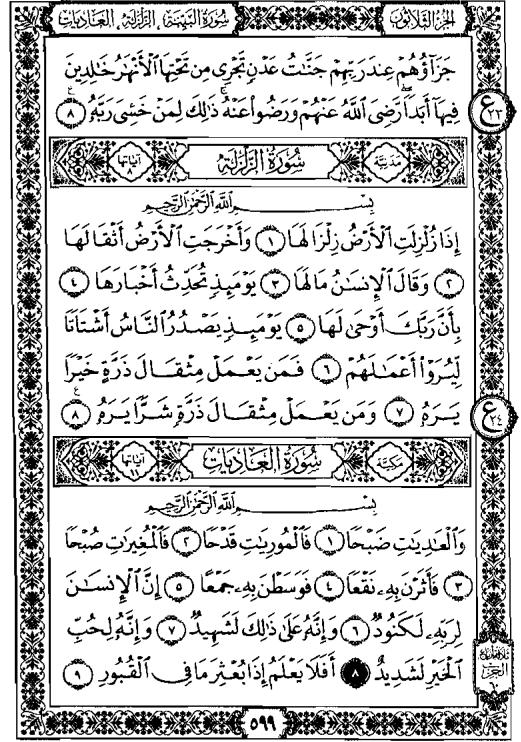 الجزء الثلاثون
سُورَةُ البَيِّنَة ، الزَّلْزَلَة ، العَادِيَات
جَزَآؤُهُمْ عِندَ رَبِّهِمْ جَنَّٰتُ عَدْنٍ تَجْرِى مِن تَحْتِهَا ٱلْأَنْهَٰرُ خَٰلِدِينَ
فِيهَآ أَبَدًا رَّضِىَ ٱللَّهُ عَنْهُمْ وَرَضُوا۟ عَنْهُ ذَٰلِكَ لِمَنْ خَشِىَ رَبَّهُۥ ٨
ع ٢٣
مَدَنِيَّة سُورَةُ الزَّلْزَلَة آيَاتُهَا ٨
بِسْمِ ٱللَّهِ ٱلرَّحْمَٰنِ ٱلرَّحِيمِ
إِذَا زُلْزِلَتِ ٱلْأَرْضُ زِلْزَالَهَا ١ وَأَخْرَجَتِ ٱلْأَرْضُ أَثْقَالَهَا
٢ وَقَالَ ٱلْإِنسَٰنُ مَا لَهَا ٣ يَوْمَئِذٍ تُحَدِّثُ أَخْبَارَهَا ٤
بِأَنَّ رَبَّكَ أَوْحَىٰ لَهَا ٥ يَوْمَئِذٍ يَصْدُرُ ٱلنَّاسُ أَشْتَاتًا
لِّيُرَوْا۟ أَعْمَٰلَهُمْ ٦ فَمَن يَعْمَلْ مِثْقَالَ ذَرَّةٍ خَيْرًا
يَرَهُۥ ٧ وَمَن يَعْمَلْ مِثْقَالَ ذَرَّةٍ شَرًّا يَرَهُۥ ٨
ع ٢٤
مَكِّيَّة سُورَةُ العَادِيَات آيَاتُهَا ١١
بِسْمِ ٱللَّهِ ٱلرَّحْمَٰنِ ٱلرَّحِيمِ
وَٱلْعَٰدِيَٰتِ ضَبْحًا ١ فَٱلْمُورِيَٰتِ قَدْحًا ٢ فَٱلْمُغِيرَٰتِ صُبْحًا
٣ فَأَثَرْنَ بِهِۦ نَقْعًا ٤ فَوَسَطْنَ بِهِۦ جَمْعًا ٥ إِنَّ ٱلْإِنسَٰنَ
لِرَبِّهِۦ لَكَنُودٌ ٦ وَإِنَّهُۥ عَلَىٰ ذَٰلِكَ لَشَهِيدٌ ٧ وَإِنَّهُۥ لِحُبِّ
ٱلْخَيْرِ لَشَدِيدٌ ٨ أَفَلَا يَعْلَمُ إِذَا بُعْثِرَ مَا فِى ٱلْقُبُورِ ٩
٥٩٩